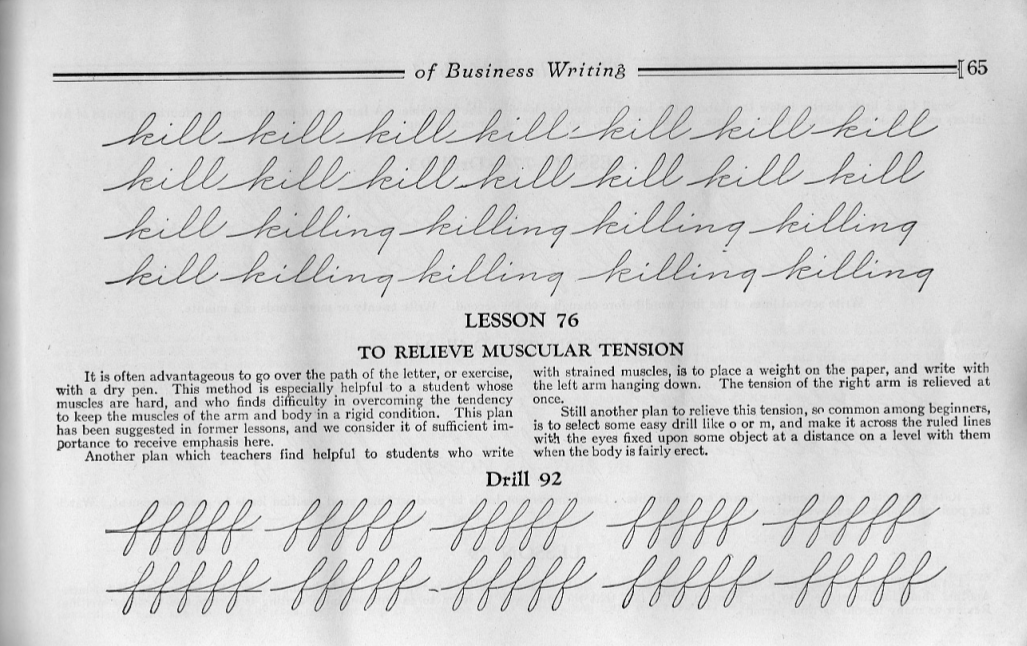 of Business Writing [65
kill kill kill kill kill kill kill
kill kill kill kill kill kill kill
kill killing killing killing killing
kill killing killing killing killing
LESSON 76
TO RELIEVE MUSCULAR TENSION
It is often advantageous to go over the path of the letter, or exercise,
with a dry pen. This method is especially helpful to a student whose
muscles are hard, and who finds difficulty in overcoming the tendency
to keep the muscles of the arm and body in a rigid condition. This plan
has been suggested in former lessons, and we consider it of sufficient im-
portance to receive emphasis here.
Another plan which teachers find helpful to students who write
with strained muscles, is to place a weight on the paper, and write with
the left arm hanging down. The tension of the right arm is relieved at
once.
Still another plan to relieve this tension, so common among beginners,
is to select some easy drill like o or m, and make it across the ruled lines
with the eyes fixed upon some object at a distance on a level with them
when the body is fairly erect.
Drill 92
fffff fffff fffff fffff fffff
fffff fffff fffff fffff fffff